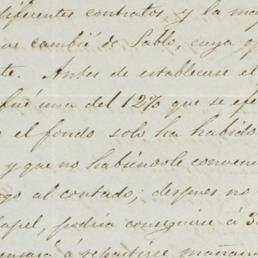 diferentes contratos, y la may
ue cambié de Sable, cuya q
te. Antes de establecerse el
fué una del 12% que se efe
o el fondo solo ha habido
y que no habiendole conveni
go al contado; despues no
apel, podria conseguirse á 3
á repartirse mañana